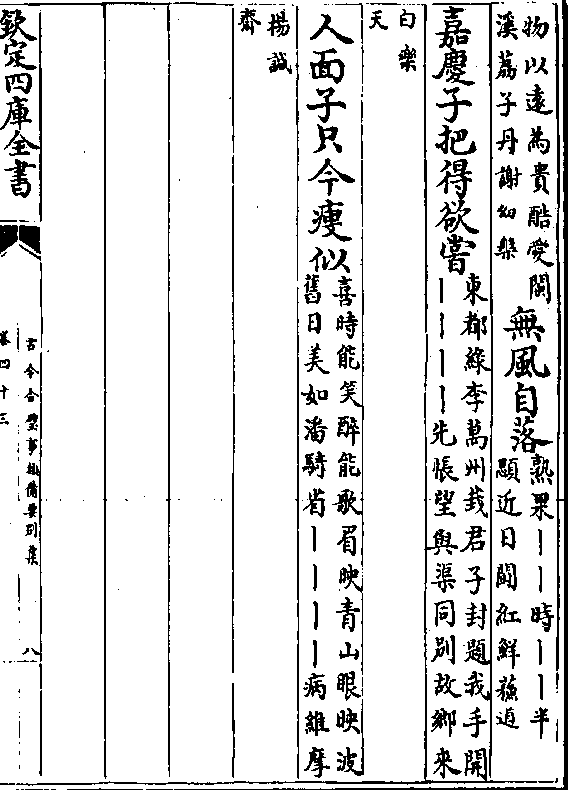 物以遠為貴酷愛閩
溪荔子丹謝幼槃
無風自落
熟果丨丨時丨丨半
顋近日鬭紅鮮蘓
嘉慶子把得欲嘗
東都緑李萬州栽君子封題我手開
丨丨丨丨先悵望與渠同別故鄉來
白樂
天
人面子只今瘦似
喜時能笑醉能歌眉映青山眼映波
舊日美如潘騎省丨丨丨丨病維摩
楊誠
齋
欽定四庫全書
古今合璧事類備要别集
卷四十三
八